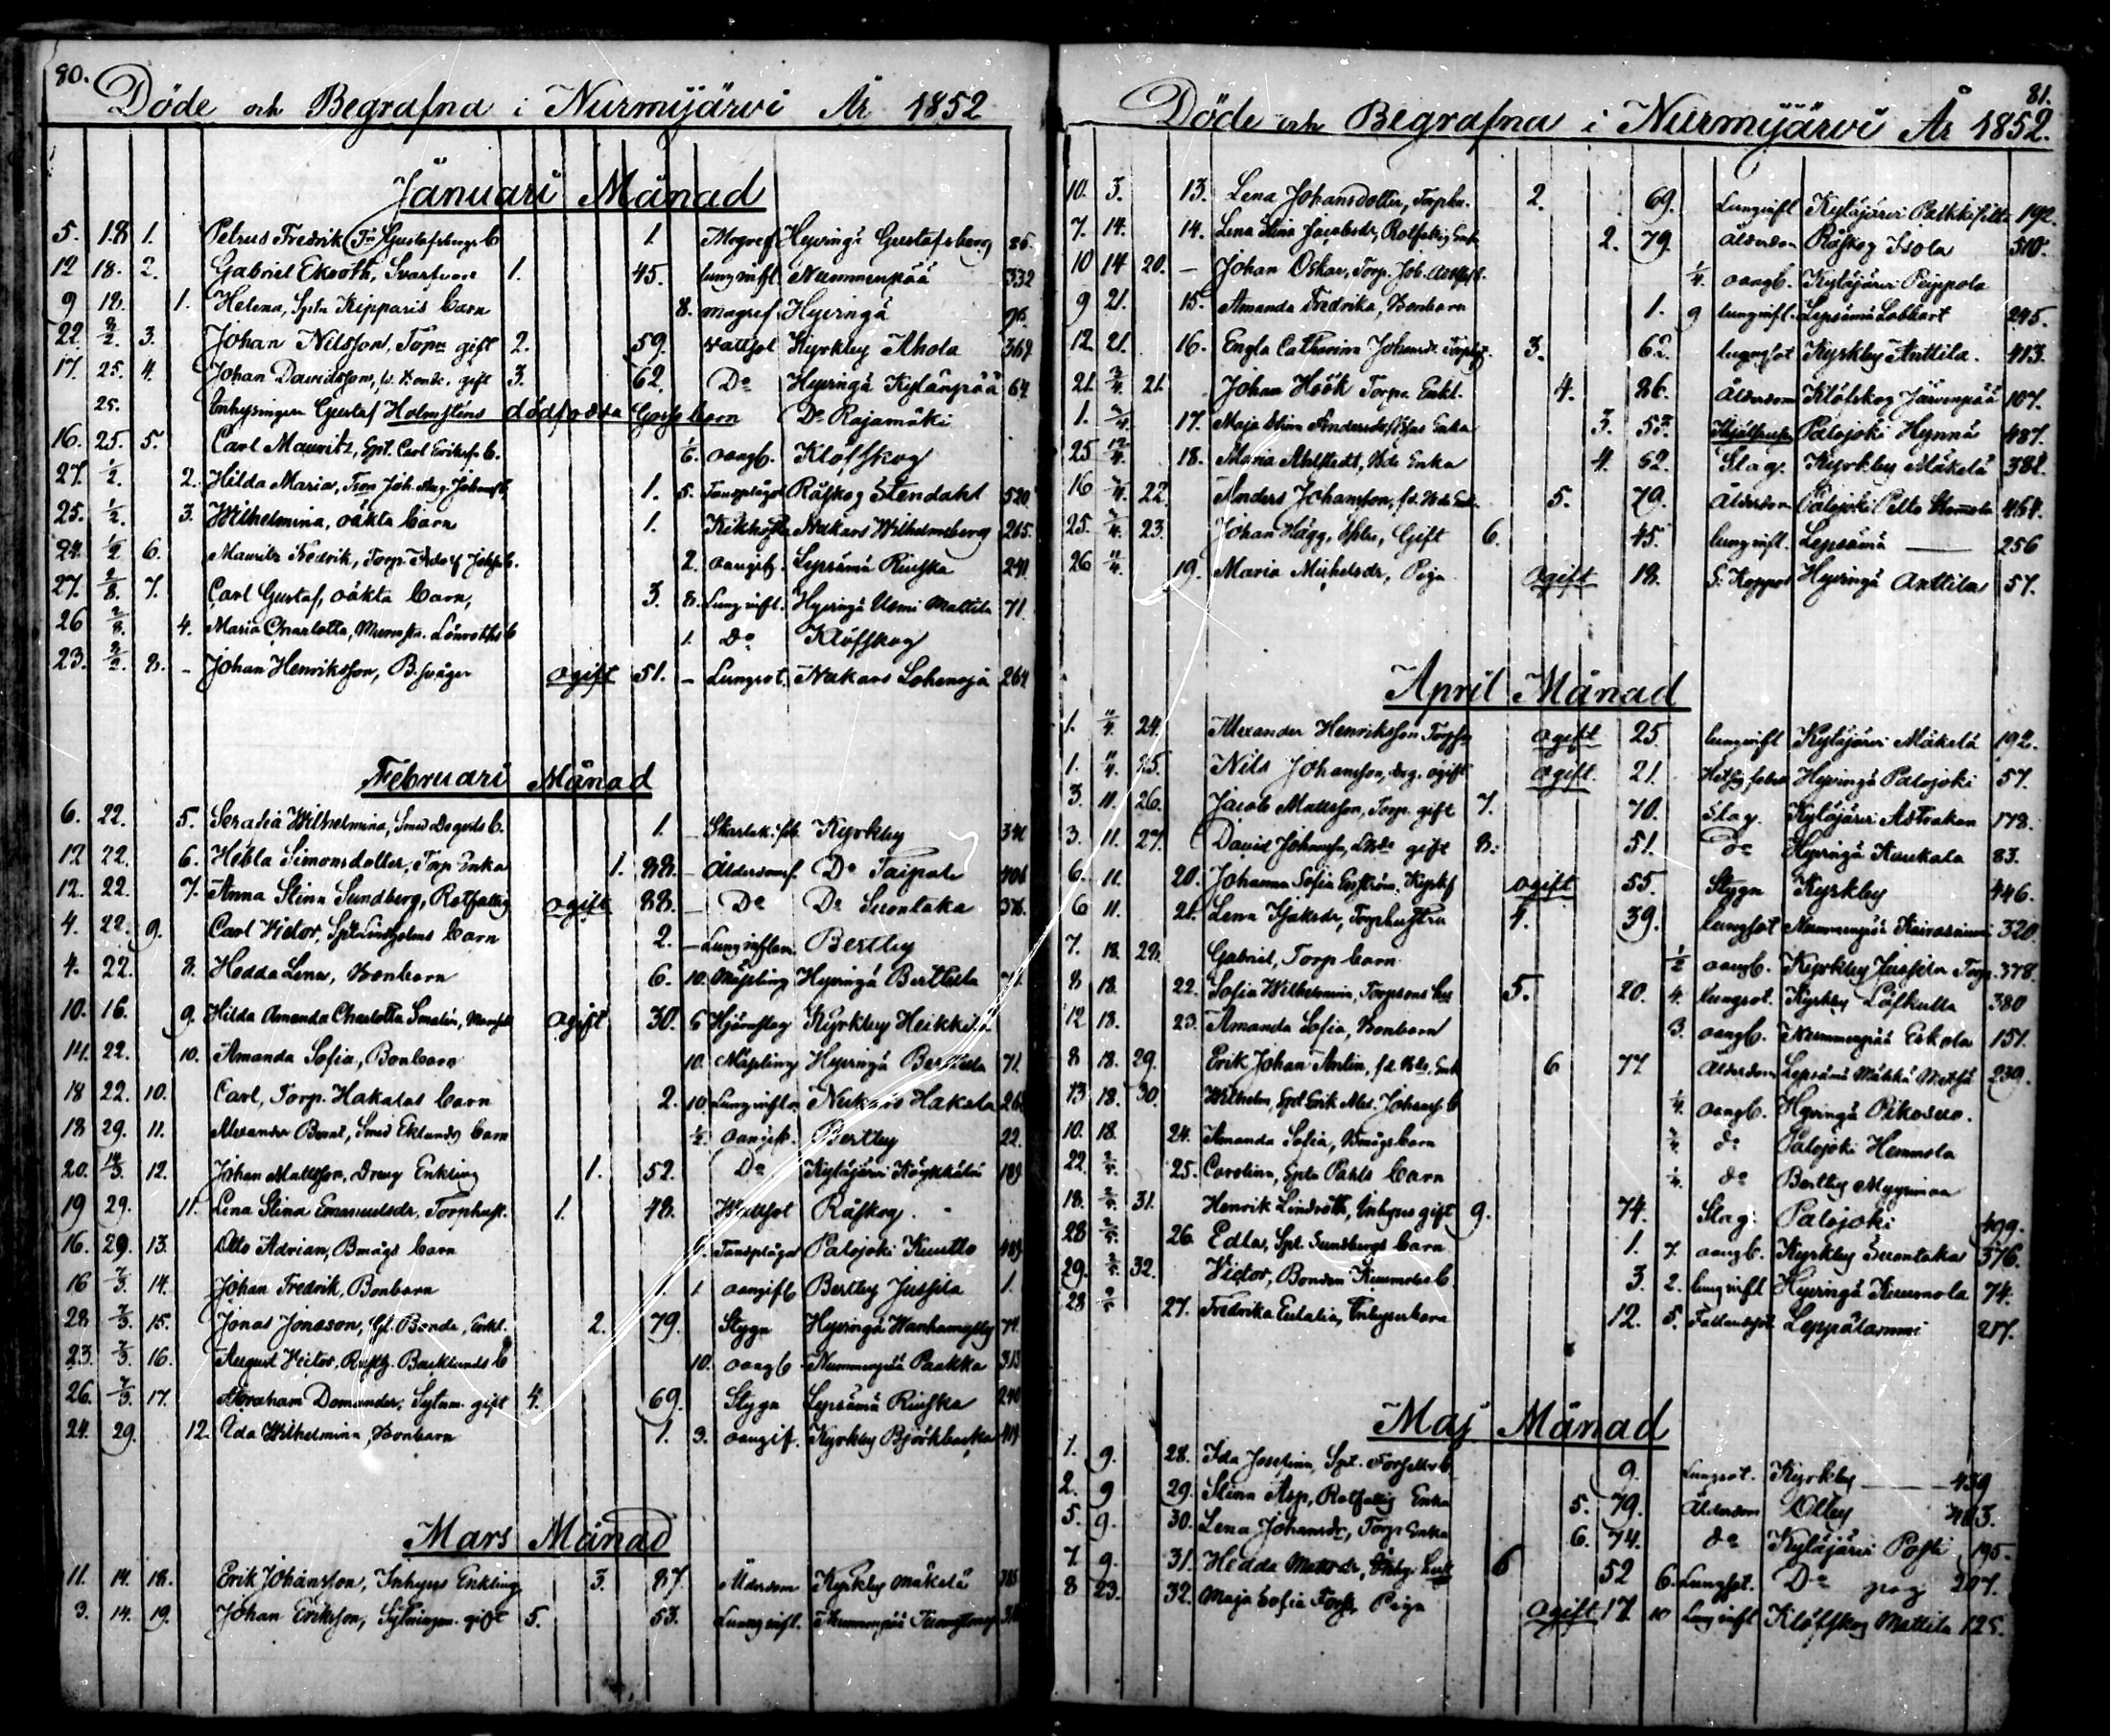 80.
Döde och Begrafna i Nurmijärvi År 1852
Januari Månad
5. 18 1. Petrus Fredrik Gustafsbergs b 1. Magref Hyvingä Gustafsberg 86.
12 18. 2. Gabriel Ekrooth, Svarfvare 1. 45. lunginfl Nummenpää 332
9 18. 1. Helena, Sptn Kipparis barn 8. magref Hyvingä
22. 2/2. 3. Johan Nilsson, Torpr gift 2. 59. vattsot Kyrkby Ahola 369.
17. 25. 4. Johan Davidsson, gift 3. 62. Do Hyvingä Kylänpää 64.
25. Inhysingen Gustaf Holmsténs dödfödda Gosse barn Do Rajamäki
16. 25. 5. Carl Mauritz, Spt. Carl Eriksss b. 1/6. oangb. Klöfskog
27. 1/2. 2. Hilda Maria, Torp. Joh. Aug. Johanss b 1. 5. Tandplågor Råskog Stendahl 520.
25. 1/2. 3. Wilhelmina, oäkta barn 1. Kikhosta Nukars Wilhelmsberg 265.
24. 1/2 6. Maurits Fredrik, Torp. Adolf Johss b. 2. oangifv. Lepsämä Rinska 241.
27. 2/8. 7. Carl Gustaf, oäkta barn, 3. 8. Lunginfl. Hyvingä Uomi Mattila 71.
26 2/8. 4. Maria Charlotta, Lönroths b 1. Do Klöfskog
23. 2/2. 8. - Johan Henriksson, B. svåger ogift 51. - Lungsot. Nukars Lohenoja 264
Februari Månad
6. 22. 5. Serafia Wilhelmina, Smed Degerts b. 1. - Skarlak. feb. Kyrkby
12 22. 6. Hebla Simonsdotter, Torp Enka 1. 88. - Ålderdomsf. Do Taipale 406
12. 22. 7. Anna Stina Sundberg, Rotfattig ogift 88. - Do Do Suontaka 376.
4. 22. 9. Carl Victor, Spt Lindholms barn 2. - Lunginflam. Bertby
4. 22. 8. Hedda Lena, Bonbarn 6. 10. Mässling Hyvingä Berttula 71.
10. 16. 9. Hilda Amanda Charlotta Smalén, ogift 30. 6 Hjärnslag Kyrkby Heikkilä
14. 22. 10. Amanda Sofia, Bonbarn 10. Mässling Hyvingä Berttula 71.
18 22. 10. Carl, Torp. Hakalas barn 2. 10 Lunginfl. Nukars Hakala 26
18 29. 11. Alexander Bernd, Smed Eklunds barn 1/2. oangifv. Bertby 22.
20. 14/3. 12. Johan Mattsson, Dreng Enkling 1. 52. Do Kyläjärvi Köykkälä 189
19 29. 11. Lena Stina Emanuelsdr, Torphust. 1. 48. Wattsot Råskog.
16. 29. 13. Otto Adrian, Bmågs barn Tandplågor Palojoki Kuntto 489
16 7/3. 14. Johan Fredrik, Bonbarn 1 oangifv Bertby Jussila 1.
28 7/3. 15. Jonas Jonasson, Gl. Bonde, Enkl. 2. 79. Stygn Hyvingä Wanhamylly 71
23. 7/3. 16. August Victor, Backlunds b 10. oangb Nummenpää Paakka 313
26. 7/3. 17. Abraham Domander, Sytnm. gift 4. 69. Stygn Lepsämä Rinska 240
24. 29. 12. Ida Wilhelmina, Bonbarn 1. 3. oangif. Kyrkby Björkbacka 419
Mars Månad
11. 14. 18. Erik Johansson, Inhyses Enkling 3. 87. Ålderdom Kyrkby Mäkelä 385
3. 14. 19. Johan Eriksson, Sytningsm. gift 5. 53. Lunginfl. Nummenpää
81.
Döde och Begrafna i Nurmijärvi År 1852.
10. 3. 13. Lena Johansdotter, Torphu. 2. 69. Lunginfl Kyläjärvi Palkkisilta 192.
7. 14. 14. Lena Stina Jacobsdr, Rotfattig Enk 2. 79. Ålderdom Råskog Isola 510.
10 14 20. - Johan Oskar, Torp. Joh. Adolfss b. 1/4. oangb. Kyläjärvi Peippola
9 21. 15. Amanda Fredrika, Bonbarn 1. 9 lunginfl. Lepsämä Lobbart 245.
12. 21. 16. Engla Catharina Johansdr. 3. 62. lungsot Kyrkby Anttila. 413.
21. 2/4. 21. Johan Höök Torpr. Enkl. 4. 86. Ålderdom Klöfskog Järvenpää 107.
1. 2/4. 17. Maja Stina Andersdr, Enka 3. 53. Palojoki Hynnä 487.
25 12/4. 18. Maria Ahlstedt, Bde Enka 4. 62. Slag. Kyrkby Mäkelä 382.
16 22. Anders Johansson, f.d. Bde Enk. 5. 79. Ålderdom Palojoki Pelto 464.
25. 23. Johan Hägg, Gift 6. 45. lunginfl. Lepsämä — 256
26 11/4. 19. Maria Michelsdr, Piga ogift 18. S. Koppor Hyvingä Anttila 57.
April Månad
1. 11/4. 24. Alexander Henriksson Torpson ogift 25. lunginfl Kyläjärvi Mäkelä 192.
1. 11/4. 25. Nils Johansson, drg. ogift ogift. 21. Hetsig feber Hyvingä Palojoki 57.
3. 11. 26. Jacob Mattsson, Torp. gift 7. 70. Slag. Kyläjärvi Astrakan 178.
3. 11. 27. David Johansson, gift 8. 51. Do Hyvingä Kuukala 83.
6. 11. 20. Johanna Sofia Enström, ogift 55. Stygn Kyrkby 446.
6 11. 21. Lena Isaksdr, Torphustru 4. 39. lungsot Nummenpää 320.
7. 18. 28. Gabriel, Torp barn 1/2 oangb. Kyrkby Jussila Torp. 378.
8 18. 22. Sofia Wilhelmina, Torpsons hus 5. 20. 4. lungsot. Kyrkby Löfkulla 380
12 18. 23. Amanda Sofia, Bonbarn 3. oangb. Nummenpää Eskola 151.
8 18. 29. Erik Johan Anlin, f.d. Bde. Enk 6 77 Ålderdom Lepsämä 239.
13 18. 30. Wilhelm, Spt Erik Alex. Johanss. b 1/4. oangb. Hyvingä Pikosuo.
10. 18. 24. Amanda Sofia, Bmågs barn do Palojoki Hemmola
22. 2/5. 25. Carolina, Spts Pahls barn 1/4. do Bertby Myyrinaa
18. 2/5. 31. Henrik Lindroth, Inhyses gift 9. 74. Slag. Palojoki 499.
28 2/5. 26. Edla, Spt. Sundbergs barn 1. 7. oangb. Kyrkby Suontaka 376.
29. 2/5. 32. Victor, Bonden Kuumolas b. 3 2. lunginfl Hyvingä Kuumola 74.
28 27. Fredrika Eulalia, Inhyserbarn 12. 5. Fallandsot Leppälammi 217.
Maj Månad
1. 9. 28. Ida Josefina, Spt. Forsells b 9. Lungsot. Kyrkby — 439
2. 9 29. Stina Asp, Rotfattig Enka 5. 79. Ålderdom Olley 403.
5. 9. 30. Lena Johansdr, Torp Enka 6. 74. do Kyläjärvi Posti 195.
7 9. 31. Hedda Mattsdr, 6 52 6. Lungsot. Do 207.
8 23. 32. Maja Sofia Forss, Piga ogift 17 10 Lunginfl Klöfskog Mattila 125.